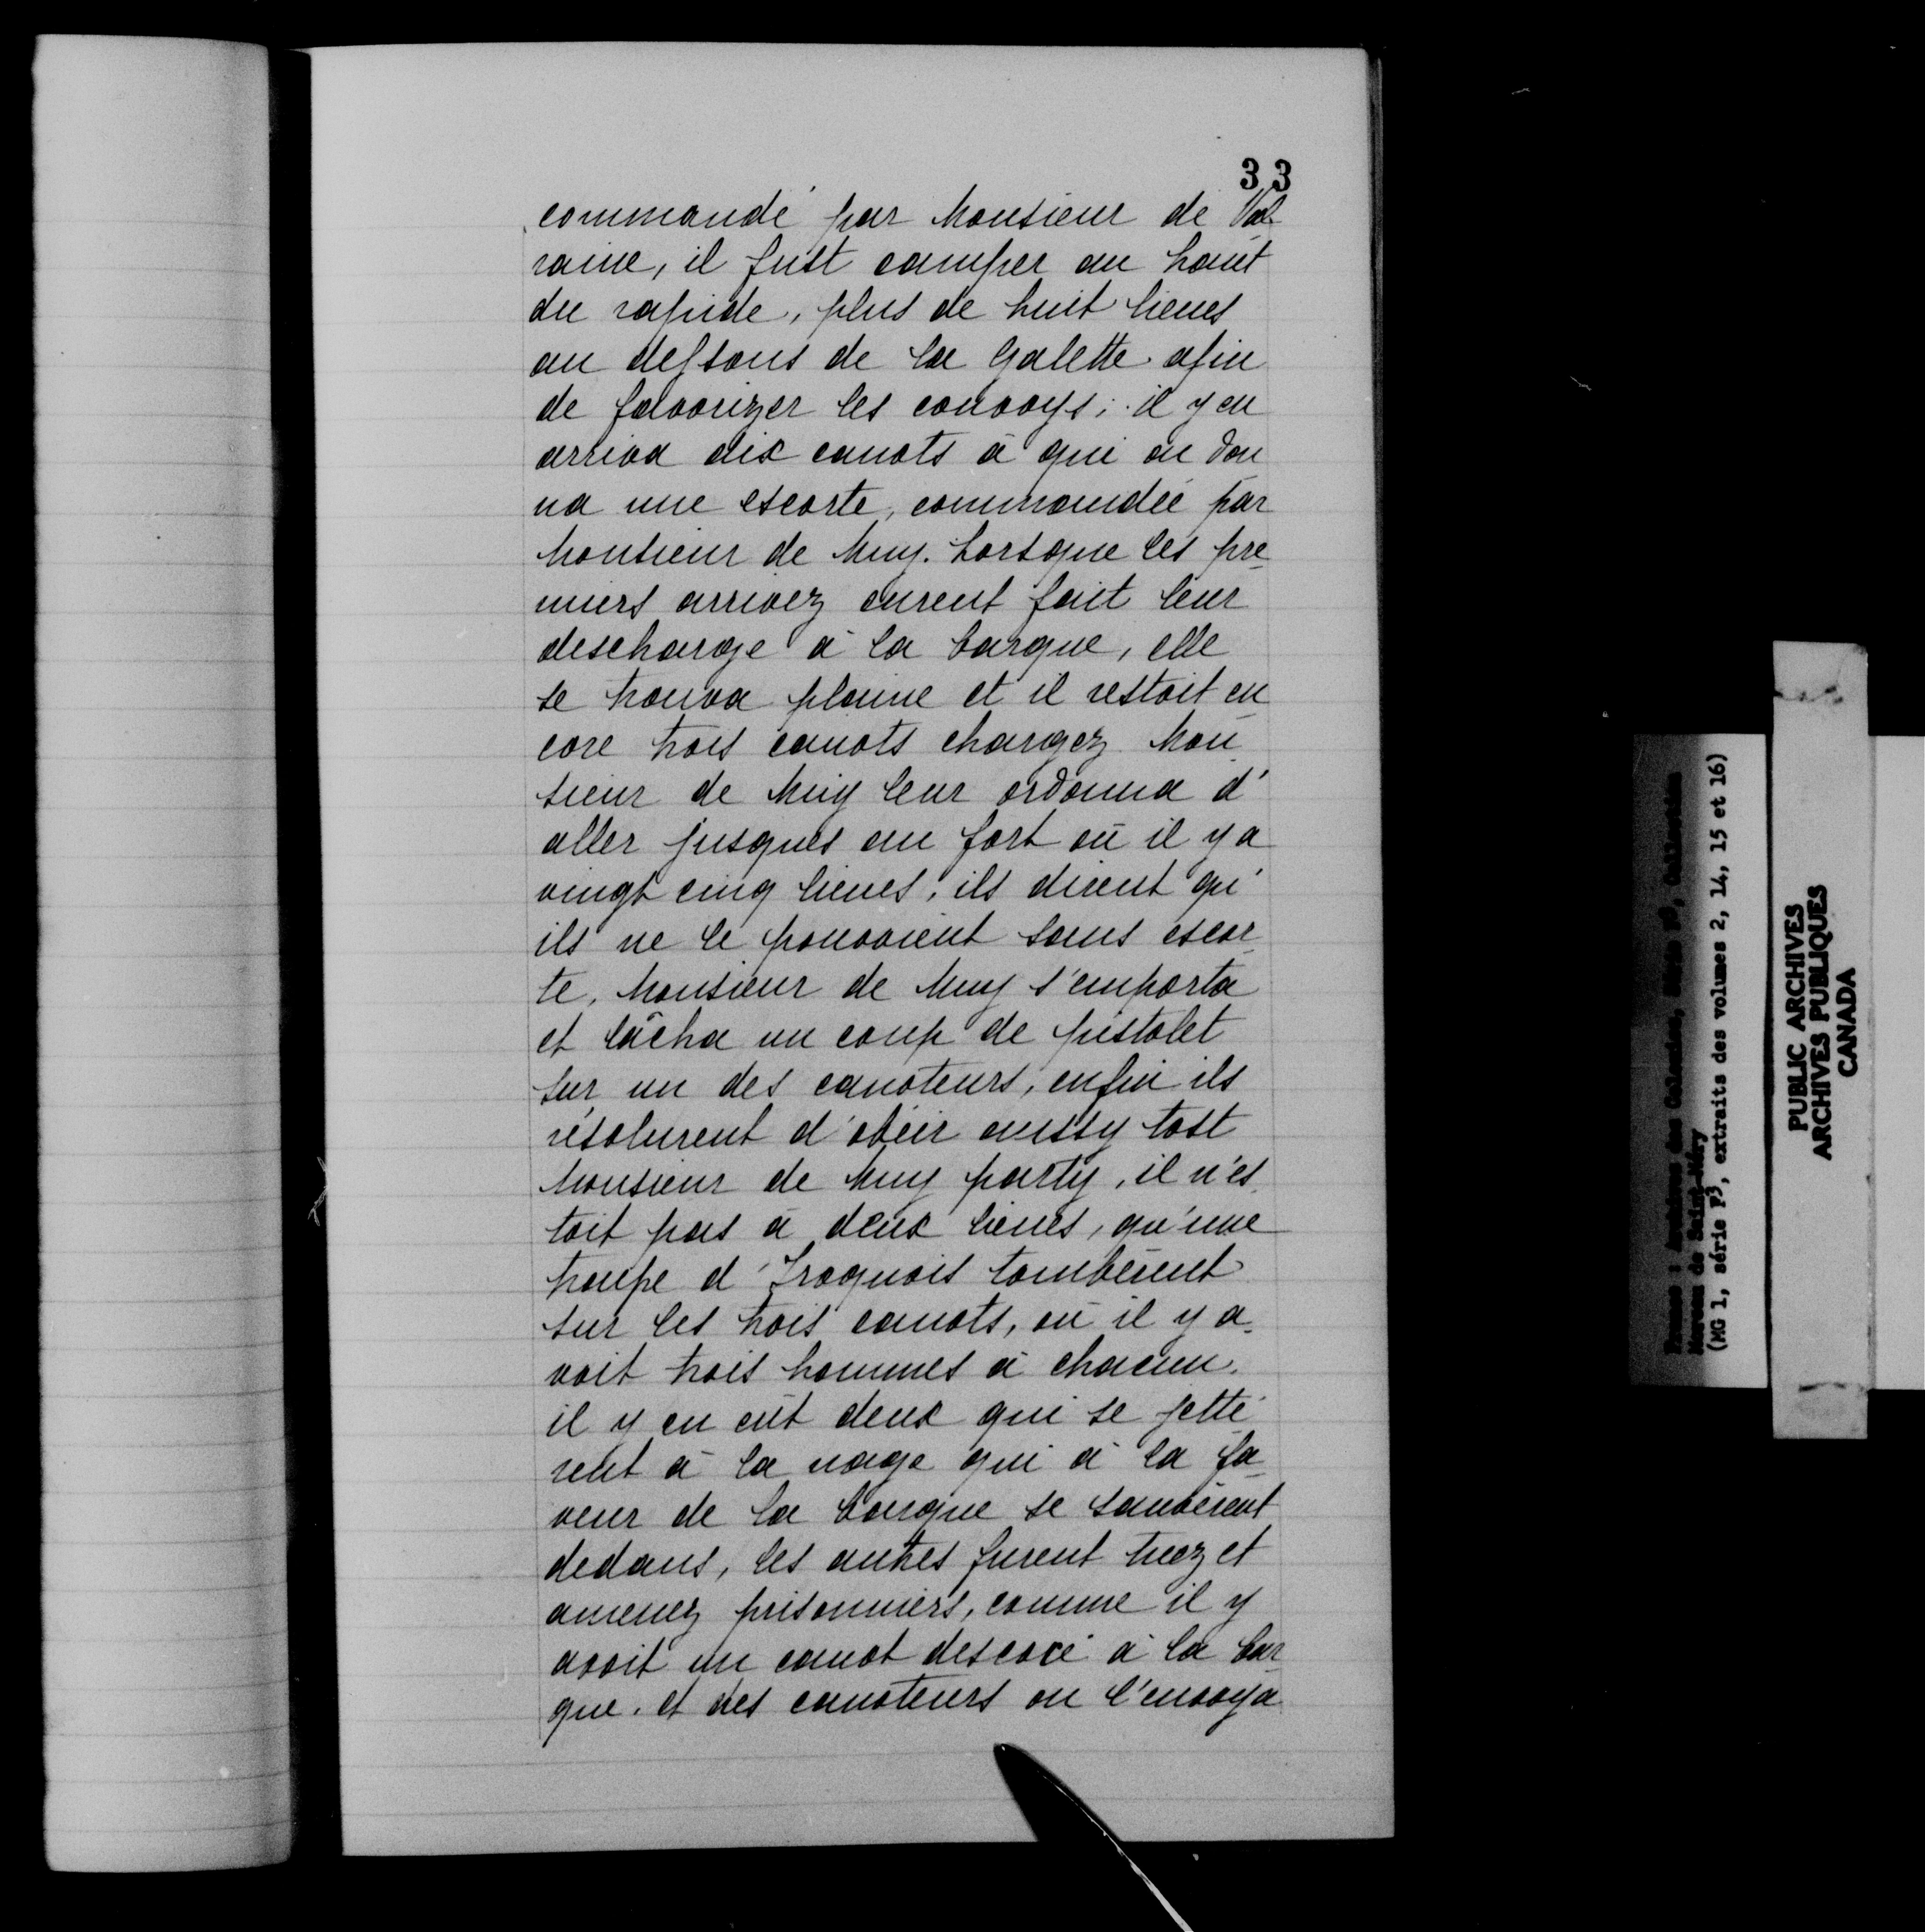 33
commandé par Monsieur de Val
raine, il fust camper au haut
du rapide, plus de huit lieues
au dessous de la Galette afin
de favorizer les convoys; il y en
arriva dix canots à qui on don
na une escorte, commandée par
Monsieur de Muy. Lorsque les pre
miers arrivez eurent fait leur
descharge à la barque, elle
se trouva plaine et il restoit en
core trois canots chargez. Mon
sieur de Muy leur ordonna d'
aller jusques au fort où il y a
vingt cinq lieues, ils dirent qu'
ils ne le pouvoient sans escor
te, Monsieur de Muy s'emporta
et lâcha un coup de pistolet
sur un des canoteurs, enfin ils
résolurent d'obéir aussy tost
Monsieur de Muy party, il n'es
toit pas à deux lieues, qu'une
troupe d'Iroquois tombèrent
sur les trois canots, où il y a-
voit trois hommes à chacun.
il y en eût deux qui se jettè
rent à la nage qui à la fa
veur de la barque se sauvèrent
dedans, les autres furent tuez et
amenez prisonniers, comme il y
avoit un canot descoré à la bar
que. et des canoteurs on l'envoya
PUBLIC ARCHIVES
ARCHIVES PUBLIQUES
CANADA
France : Archives des Colonies, Série F3, Collection
Moreau de Saint-Méry
(MG 1, série F3, extraits des volumes 2, 14, 15 et 16)